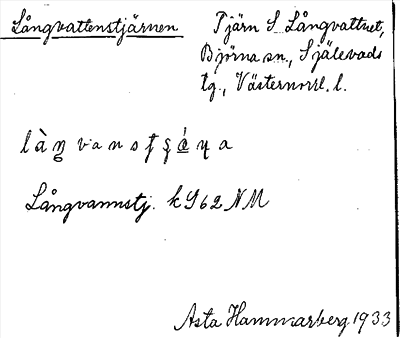 Långvattenstjärnen
Tjärn S Långvattnet,
Björna sn., Själevads
tg., Västernorrl. l.
Långvannstj. k J 62 NM
Asta Hammarberg 1933